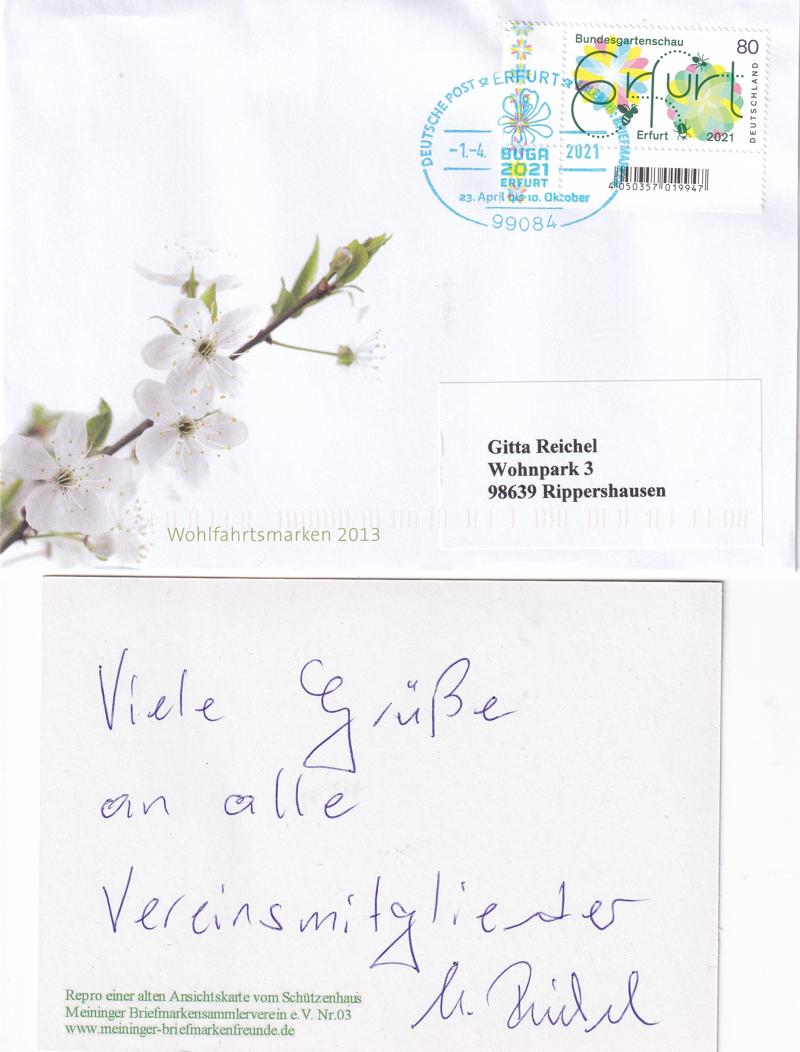 Bundesgartenschau 80
Erfurt
DEUTSCHLAND
Erfurt 2021
4 050357 019947
DEUTSCHE POST ERFURT
-1.-4. 2021
BUGA
2021
ERFURT
23. April bis 10. Oktober
99084
Gitta Reichel
Wohnpark 3
98639 Rippershausen
Wohlfahrtsmarken 2013
Viele Grüße
an alle
Vereinsmitglieder
Repro einer alten Ansichtskarte vom Schützenhaus
Meininger Briefmarkensammlerverein e.V. Nr.03
www.meininger-briefmarkenfreunde.de